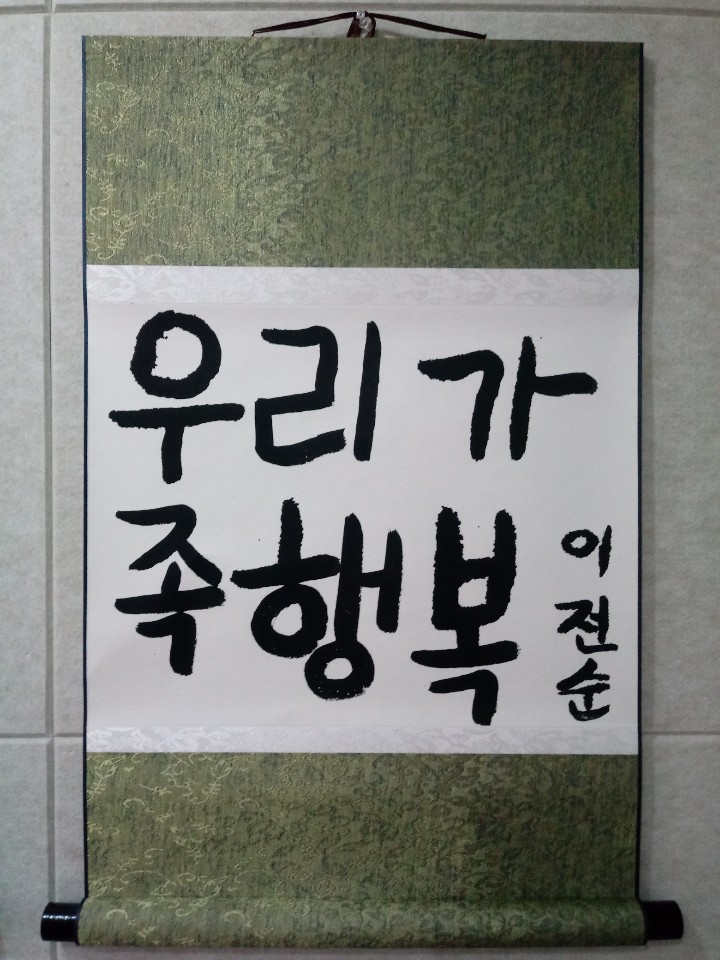 우리가
족행복
이전순